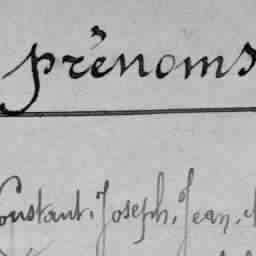 prénoms
Constant, Joseph, Jean,